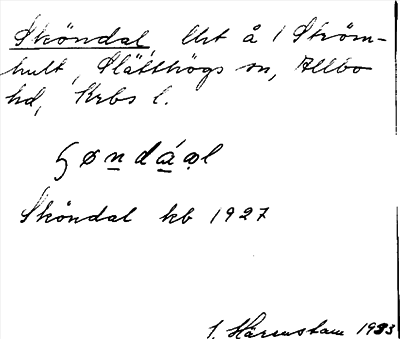 Sköndal, lht å 1 Ström-
hult, Slätthögs sn, Allbo
hd, Krbs l.
ʃøndáəl
Sköndal kb 1927
S. Härenstam 1933